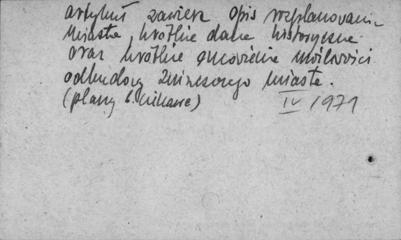 artykuł zawiera opis rozplanowania
miasta, krótkie dane historyczne
oraz krótkie omówienie możliwości
odbudowy zniszczonego miasta.
(plany b. ciekawe) IV 1971